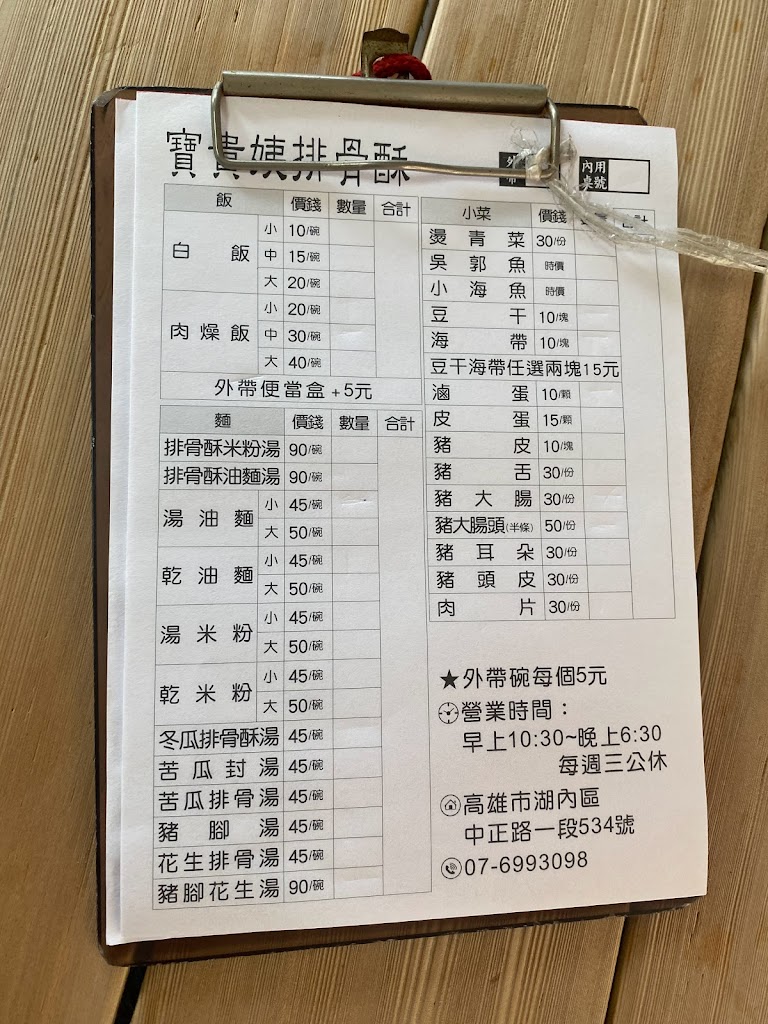 寶貴姨排骨酥
外帶
內用桌號
飯 價錢 數量 合計
白飯 小 10/碗
中 15/碗
大 20/碗
肉燥飯 小 20/碗
中 30/碗
大 40/碗
外帶便當盒+5元
麵 價錢 數量 合計
排骨酥米粉湯 90/碗
排骨酥油麵湯 90/碗
湯油麵 小 45/碗
大 50/碗
乾油麵 小 45/碗
大 50/碗
湯米粉 小 45/碗
大 50/碗
乾米粉 小 45/碗
大 50/碗
冬瓜排骨酥湯 45/碗
苦瓜封湯 45/碗
苦瓜排骨湯 45/碗
豬腳湯 45/碗
花生排骨湯 45/碗
豬腳花生湯 90/碗
小菜 價錢 合計
燙青菜 30/份
吳郭魚 時價
小海魚 時價
豆干 10/塊
海帶 10/塊
豆干海帶任選兩塊15元
滷蛋 10/顆
皮蛋 15/顆
豬皮 10/塊
豬舌 30/份
豬大腸 30/份
豬大腸頭(半條) 50/份
豬耳朵 30/份
豬頭皮 30/份
肉片 30/份
★外帶碗每個5元
營業時間：
早上10:30~晚上6:30
每週三公休
高雄市湖內區
中正路一段534號
07-6993098